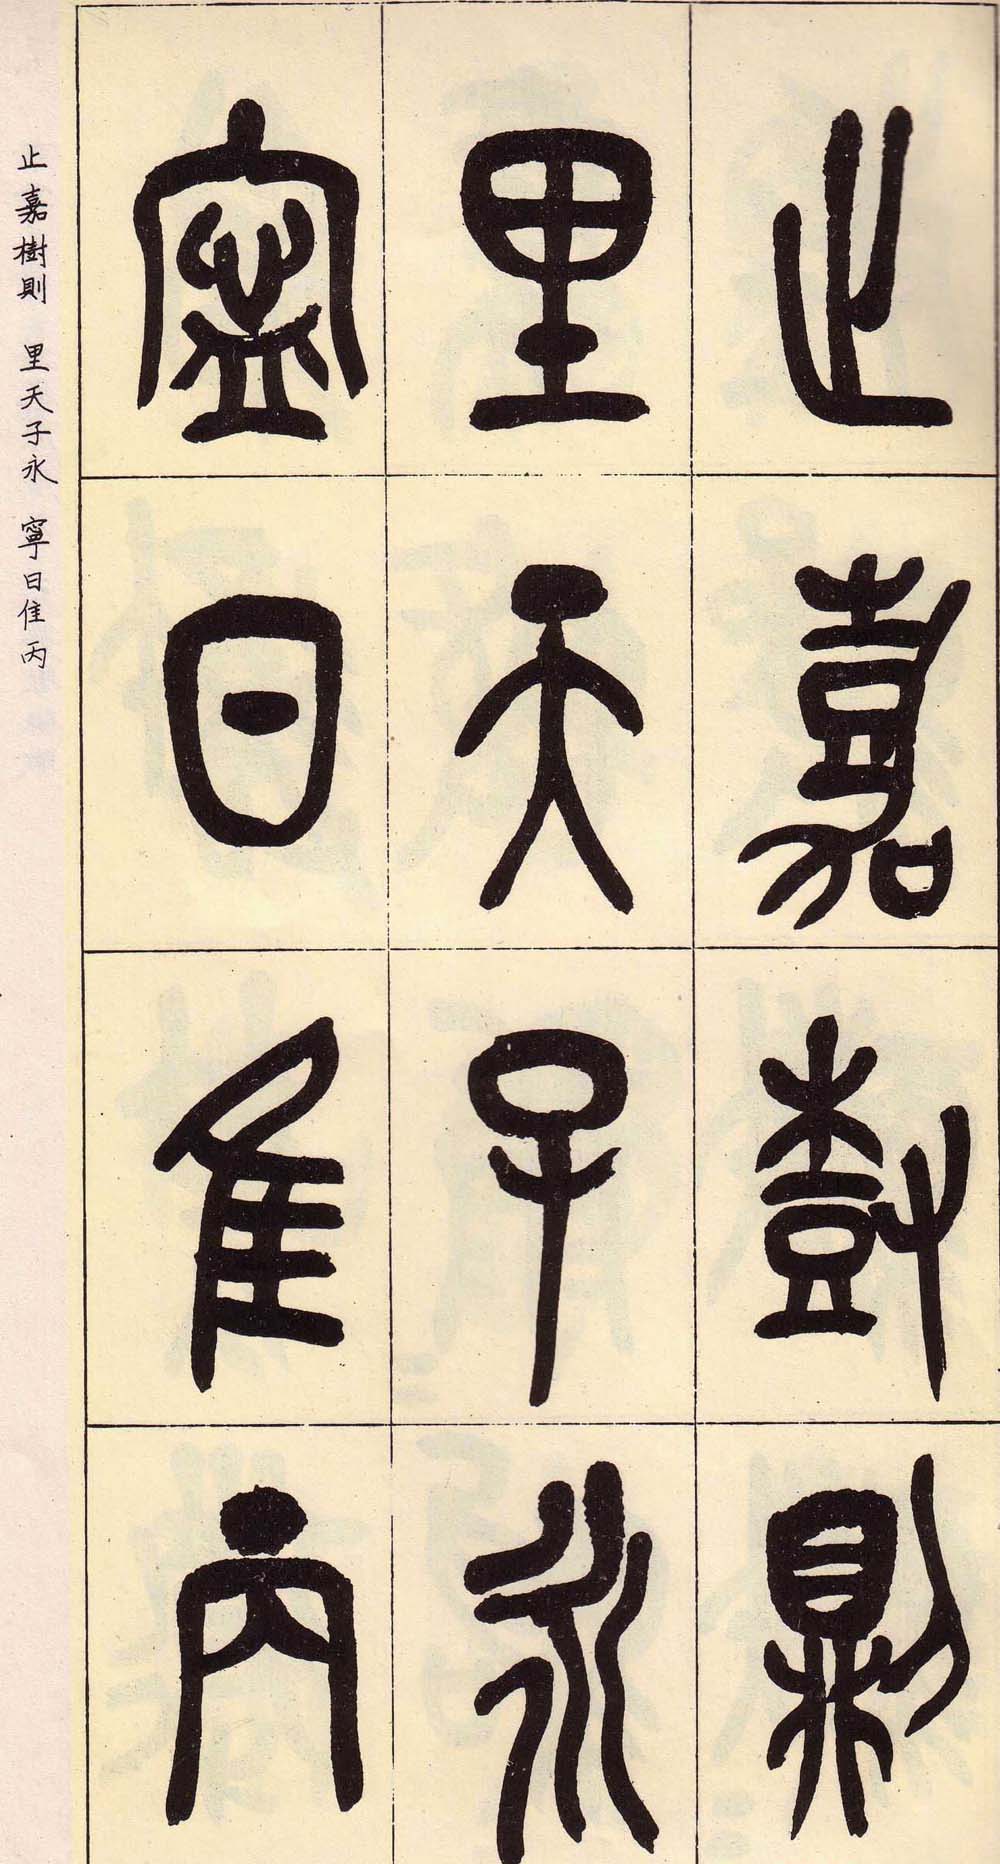 止嘉樹則
里天子永
寧日隹丙
止嘉樹則 里天子永 寧日隹丙